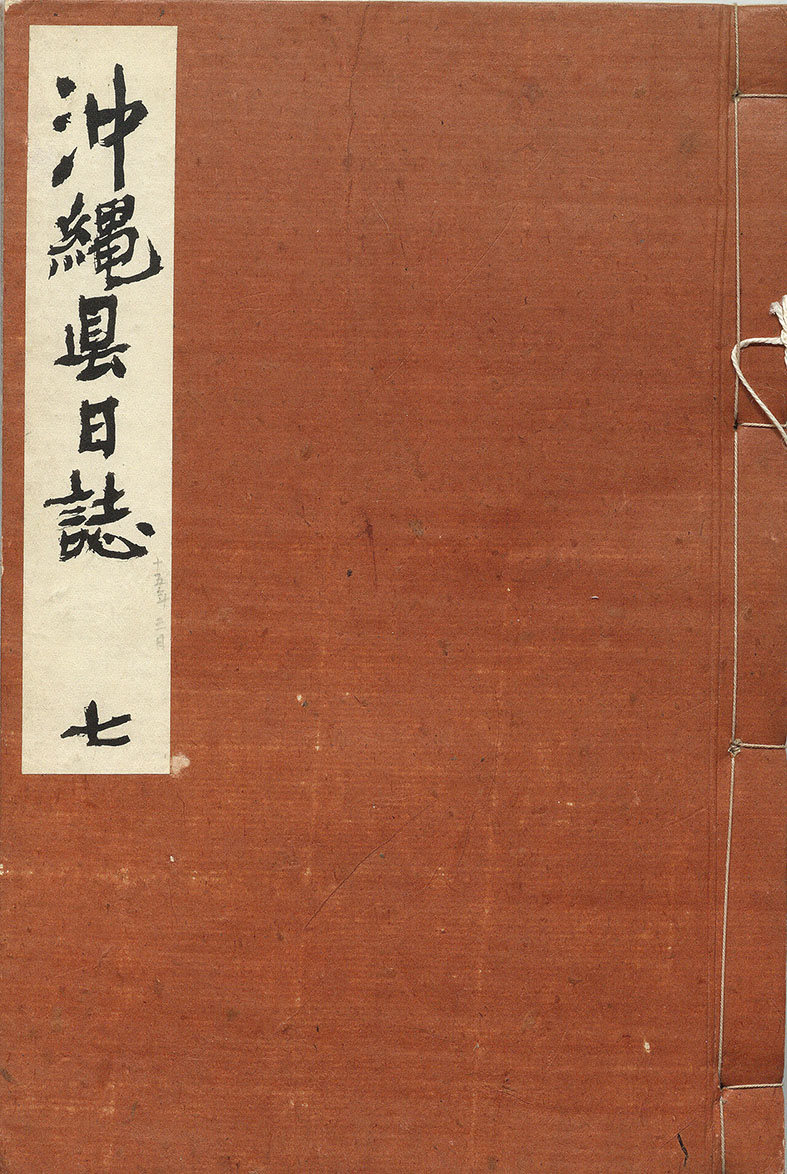 沖縄県日誌 七
十五年 三月